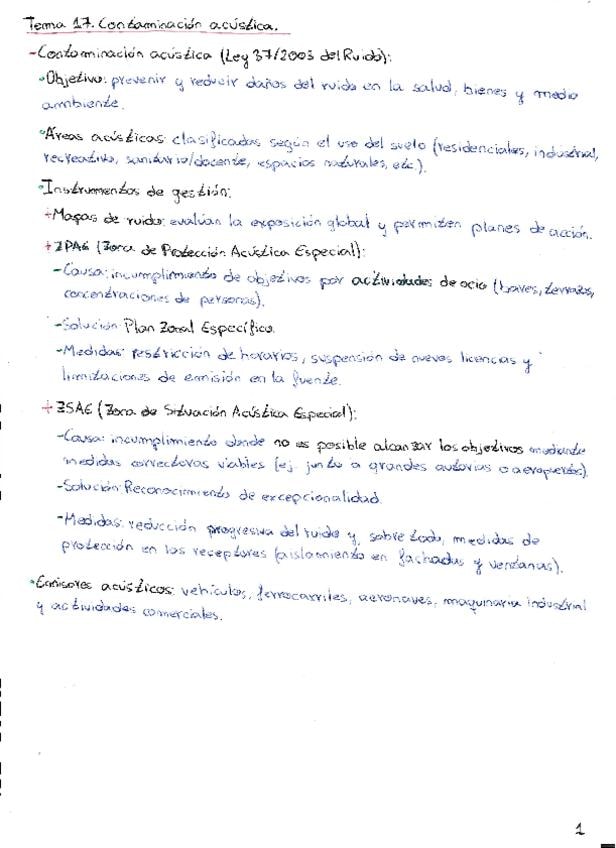 Tema 17. Contaminación acústica.
- Contaminación acústica (Ley 37/2003 del Ruido):
• Objetivo: prevenir y reducir daños del ruido en la salud, bienes y medio
ambiente.
• Áreas acústicas: clasificadas según el uso del suelo (residenciales, industrial,
recreativo, sanitario/docente, espacios naturales, etc.).
• Instrumentos de gestión:
+ Mapas de ruido: evalúan la exposición global y permiten planes de acción.
+ ZPAE (Zona de Protección Acústica Especial):
- Causa: incumplimiento de objetivos por actividades de ocio (bares, terrazas,
concentraciones de personas).
- Solución: Plan Zonal Específico.
- Medidas: restricción de horarios, suspensión de nuevas licencias y
limitaciones de emisión en la fuente.
+ ZSAE (Zona de Situación Acústica Especial):
- Causa: incumplimiento donde no es posible alcanzar los objetivos mediante
medidas correctoras viables (ej. junto a grandes autovías o aeropuertos).
- Solución: Reconocimiento de excepcionalidad.
- Medidas: reducción progresiva del ruido y, sobre todo, medidas de
protección en los receptores (aislamiento en fachadas y ventanas).
• Emisores acústicos: vehículos, ferrocarriles, aeronaves, maquinaria industrial
y actividades comerciales.
1